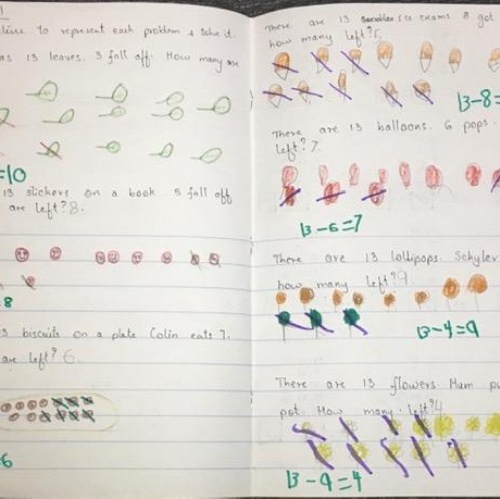 1
to represent each problem & solve it.
as 13 leaves. 3 fall off. How many are
=10
13 stickers on a book. 5 fall off
are left? 8.
=8
biscuits on a plate Colin eats 7.
are left? 6.
6
There are 13 ice creams 8 got
how many left? 5
13-8=
There are 13 balloons. 6 pops.
left? 7
13-6=7
There are 13 lollipops. Schyler
how many left? 9
13-4=9
There are 13 flowers Mum pu
pot. How many left? 4
13-9=4